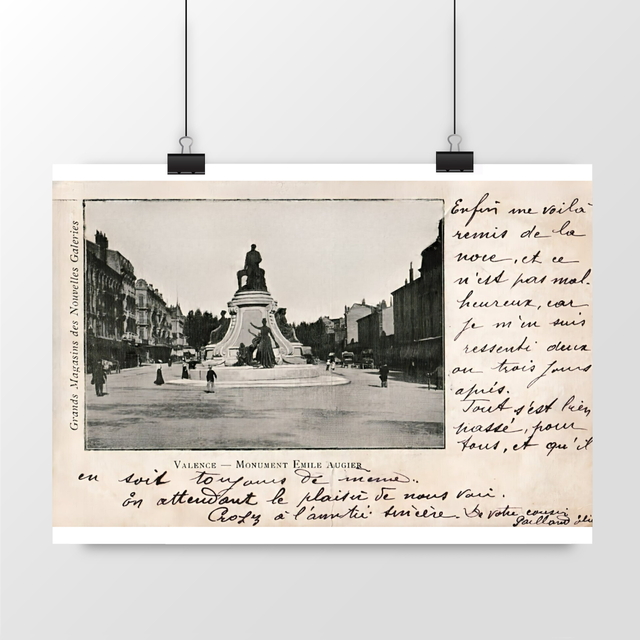 Grands Magasins des Nouvelles Galeries
Enfin me voilà
remis de la
noce, et ce
n'est pas mal-
heureux, car
je m'en suis
ressenti deux
ou trois jours
après.
Tout s'est bien
passé, pour
tous, et qu'il
VALENCE — MONUMENT EMILE AUGIER
en soit toujours de même.
En attendant le plaisir de nous voir.
Croyez à l'amitié sincère. De votre cousin
Gaillard